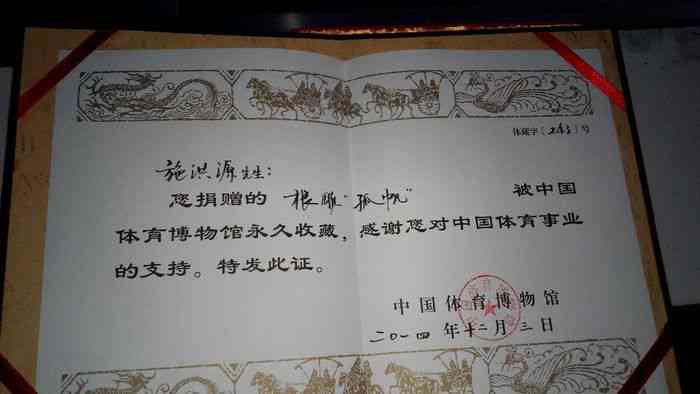 体藏字〔 〕号
施洪源先生:
您捐赠的 根雕"孤帆" 被中国
体育博物馆永久收藏，感谢您对中国体育事业
的支持。特发此证。
中国体育博物馆
二〇一四年十二月三日